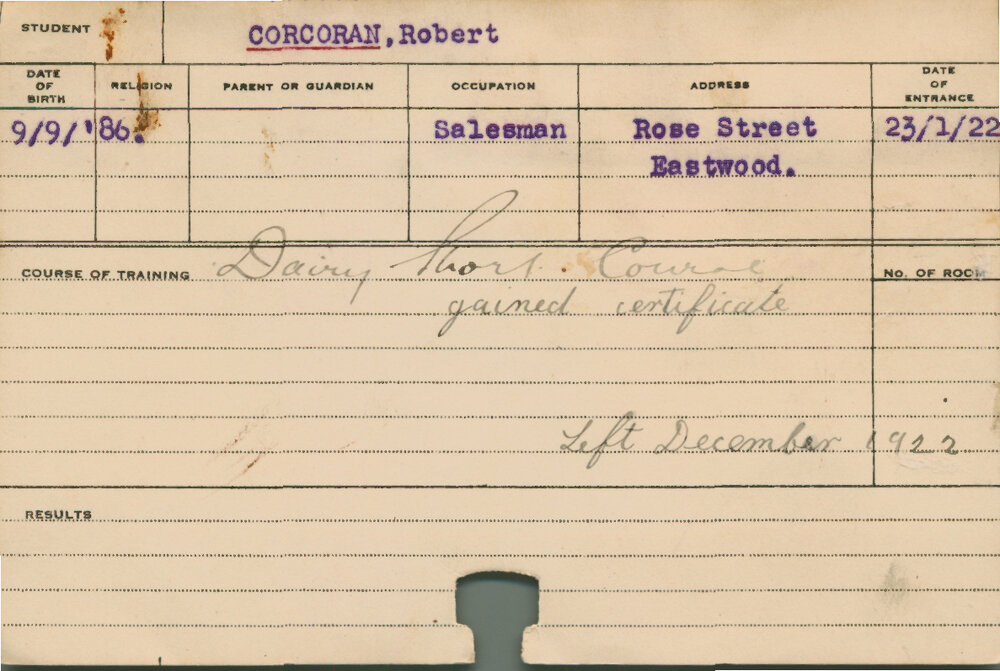 STUDENT CORCORAN, Robert
DATE OF BIRTH RELIGION PARENT OR GUARDIAN OCCUPATION ADDRESS DATE OF ENTRANCE
9/9/'86. Salesman Rose Street 23/1/22
Eastwood.
COURSE OF TRAINING Dairy Short Course No. OF ROOM
gained certificate
Left December 1922
RESULTS